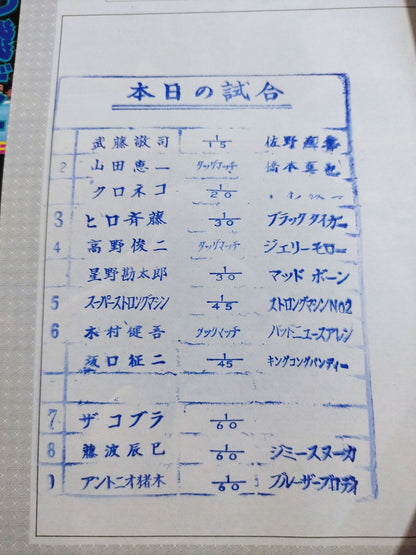 本日の試合
武藤敬司 1/15 佐野
2 山田恵一 タッグマッチ 橋本真也
クロネコ 1/20
3 ヒロ斉藤 1/30 ブラックタイガー
4 高野俊二 タッグマッチ ジェリーモロー
星野勘太郎 1/30 マッド ボーン
5 スーパーストロングマシン 1/45 ストロングマシンNo2
6 木村健吾 タッグマッチ バッドニュースアレン
坂口征二 1/45 キングコングバンディー
7 ザコブラ 1/60
8 藤波辰巳 1/60 ジミースヌーカ
9 アントニオ猪木 1/60 ブルーザーブロディ